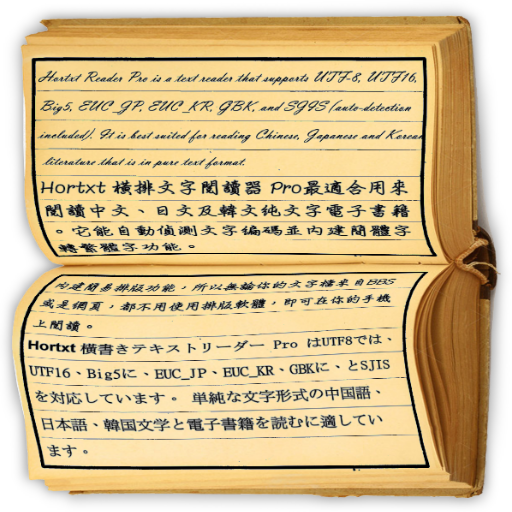 Hortxt Reader Pro is a text reader that supports UTF-8, UTF16,
Big5, EUC_JP, EUC_KR, GBK, and SJIS (auto-detection
included). It is best suited for reading Chinese, Japanese and Korean
literature that is in pure text format.
Hortxt 橫排文字閱讀器 Pro最適合用來
閱讀中文、日文及韓文純文字電子書籍
。它能自動偵測文字編碼並內建簡體字
轉繁體字功能。
內建簡易排版功能，所以無論你的文字檔來自BBS
或是網頁，都不用使用排版軟體，即可在你的手機
上閱讀。
Hortxt 橫書きテキストリーダー Pro はUTF8では、
UTF16、Big5に、EUC_JP、EUC_KR、GBKに、とSJIS
を対応しています。 単純な文字形式の中国語、
日本語、韓国文学と電子書籍を読むに適してい
ます。